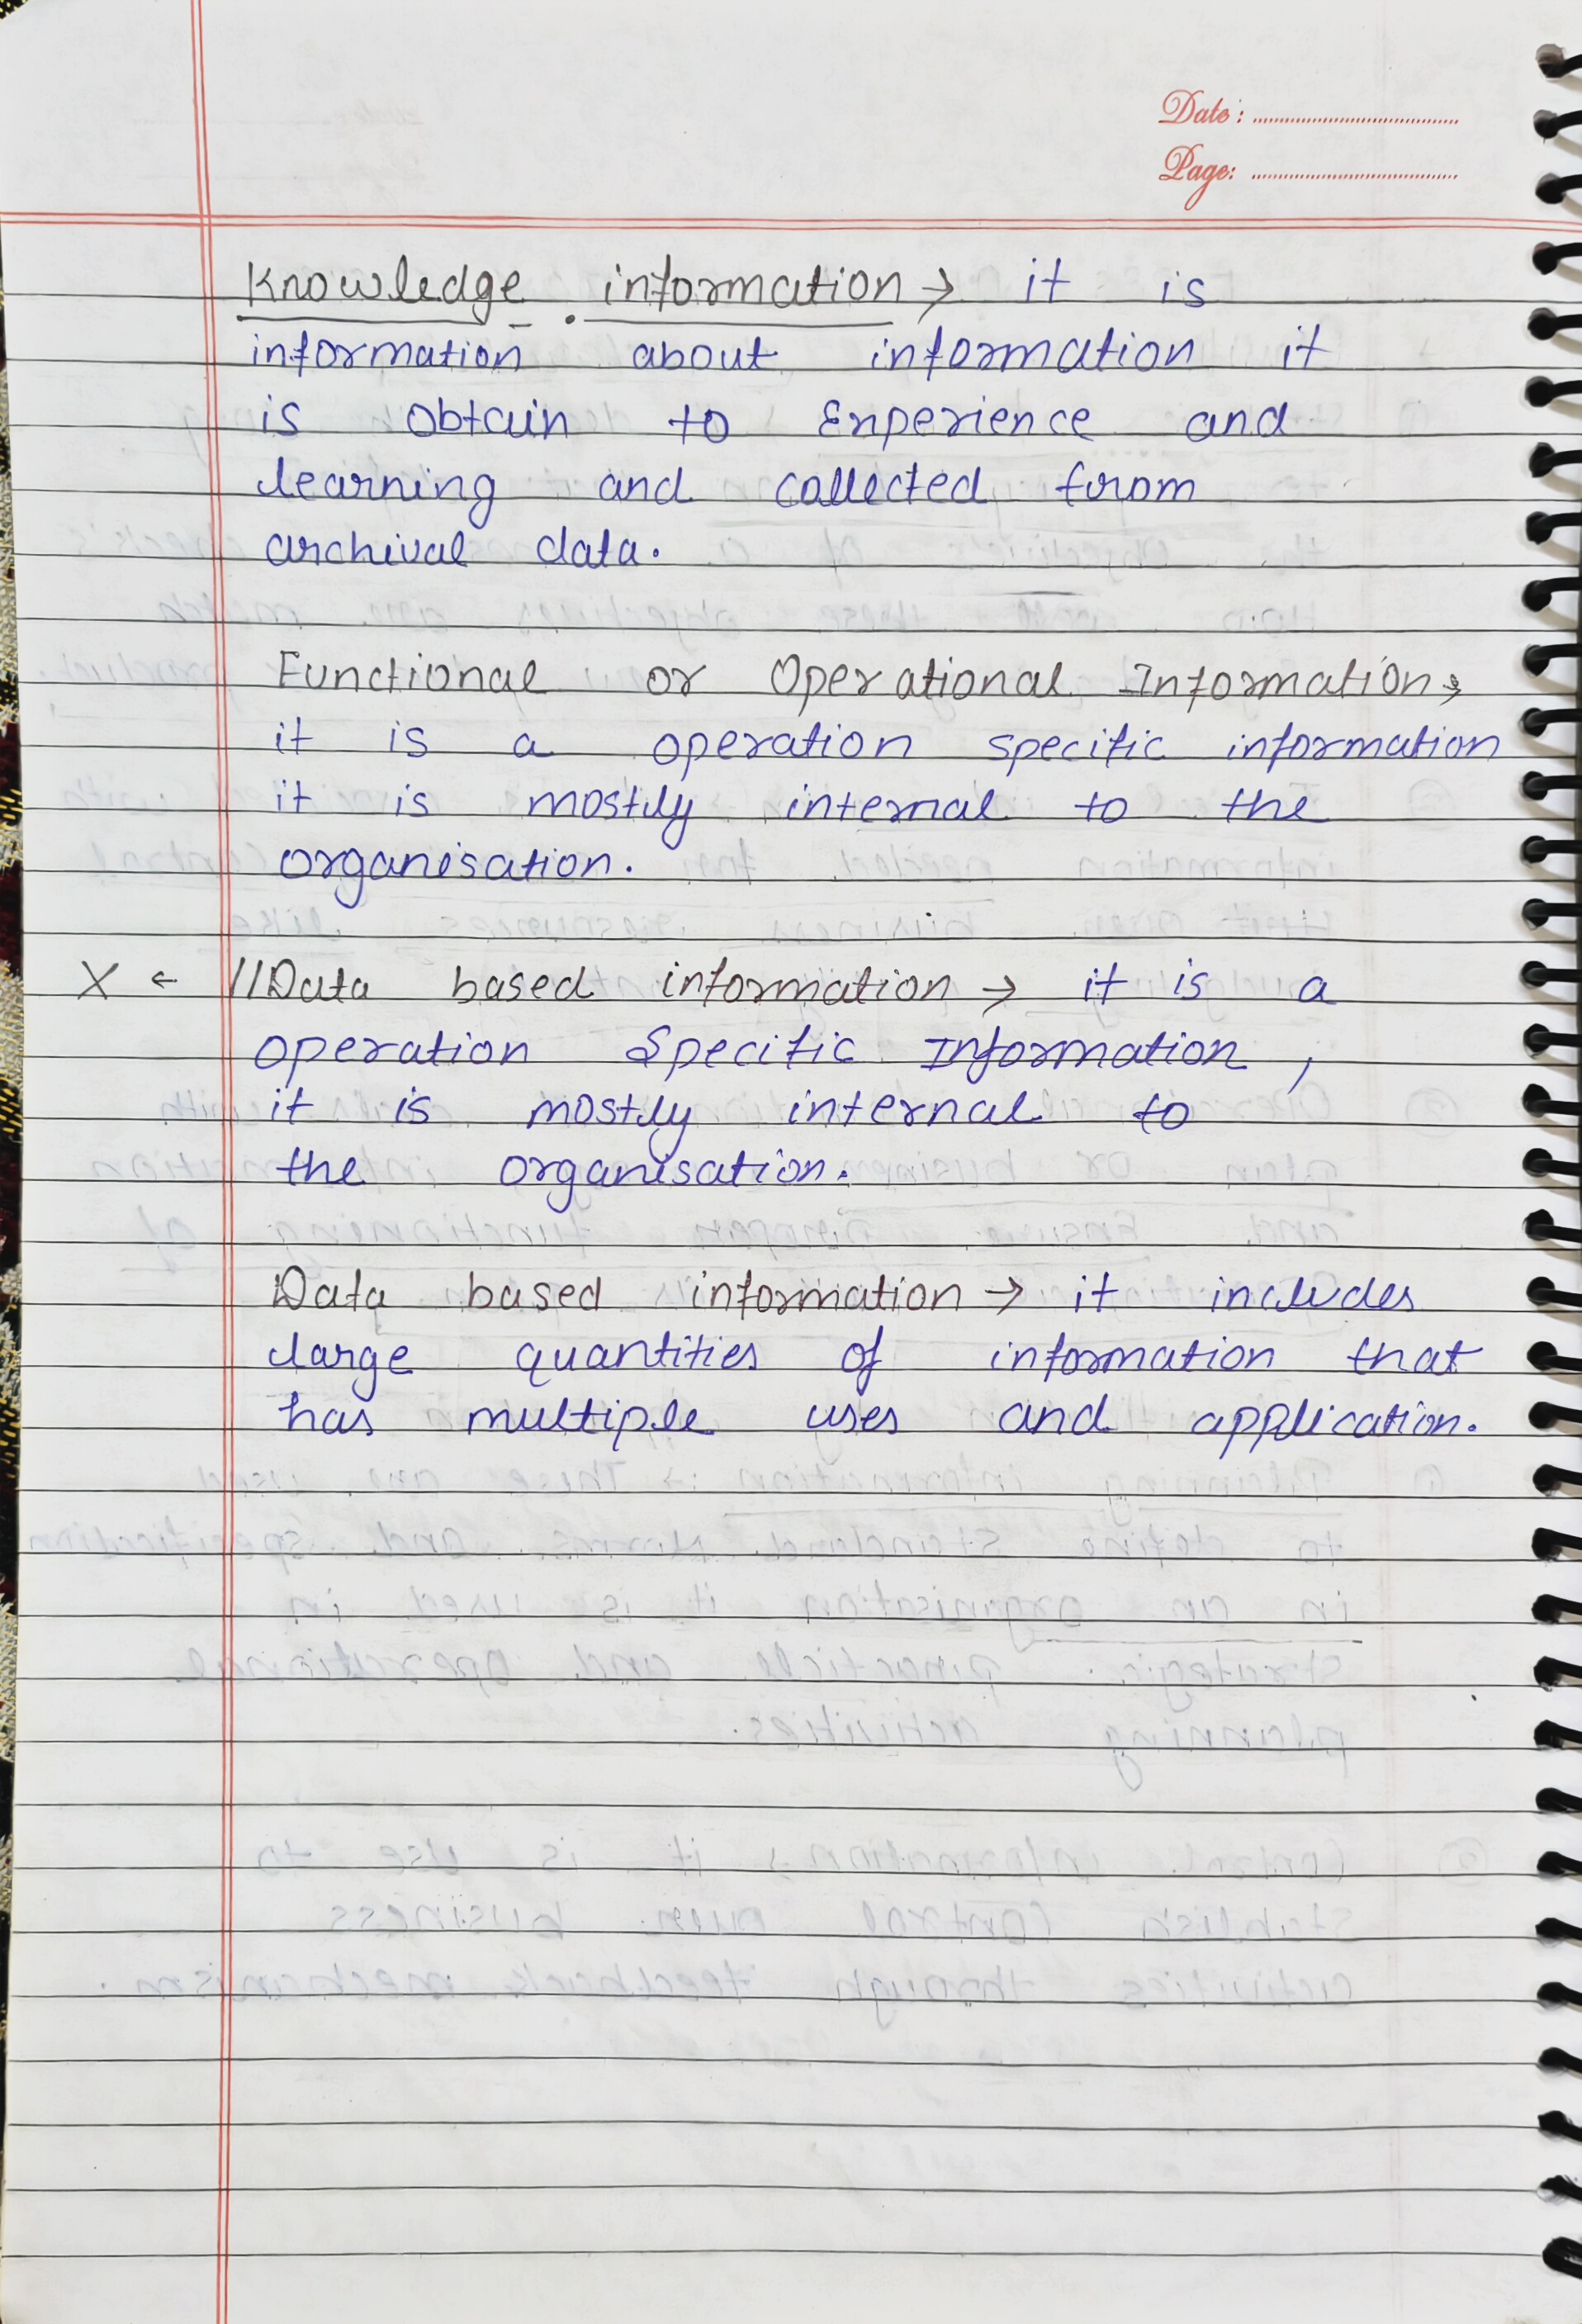 Date : ....................................
Page: ....................................
Knowledge information → it is
information about information it
is obtain to Experience and
learning and collected from
archival data.
Functional or Operational Information→
it is a operation specific information
it is mostly internal to the
organisation.
X ← //Data based information → it is a
operation Specific Information,
it is mostly internal to
the organisation.
Data based information → it includes
large quantities of information that
has multiple uses and application.